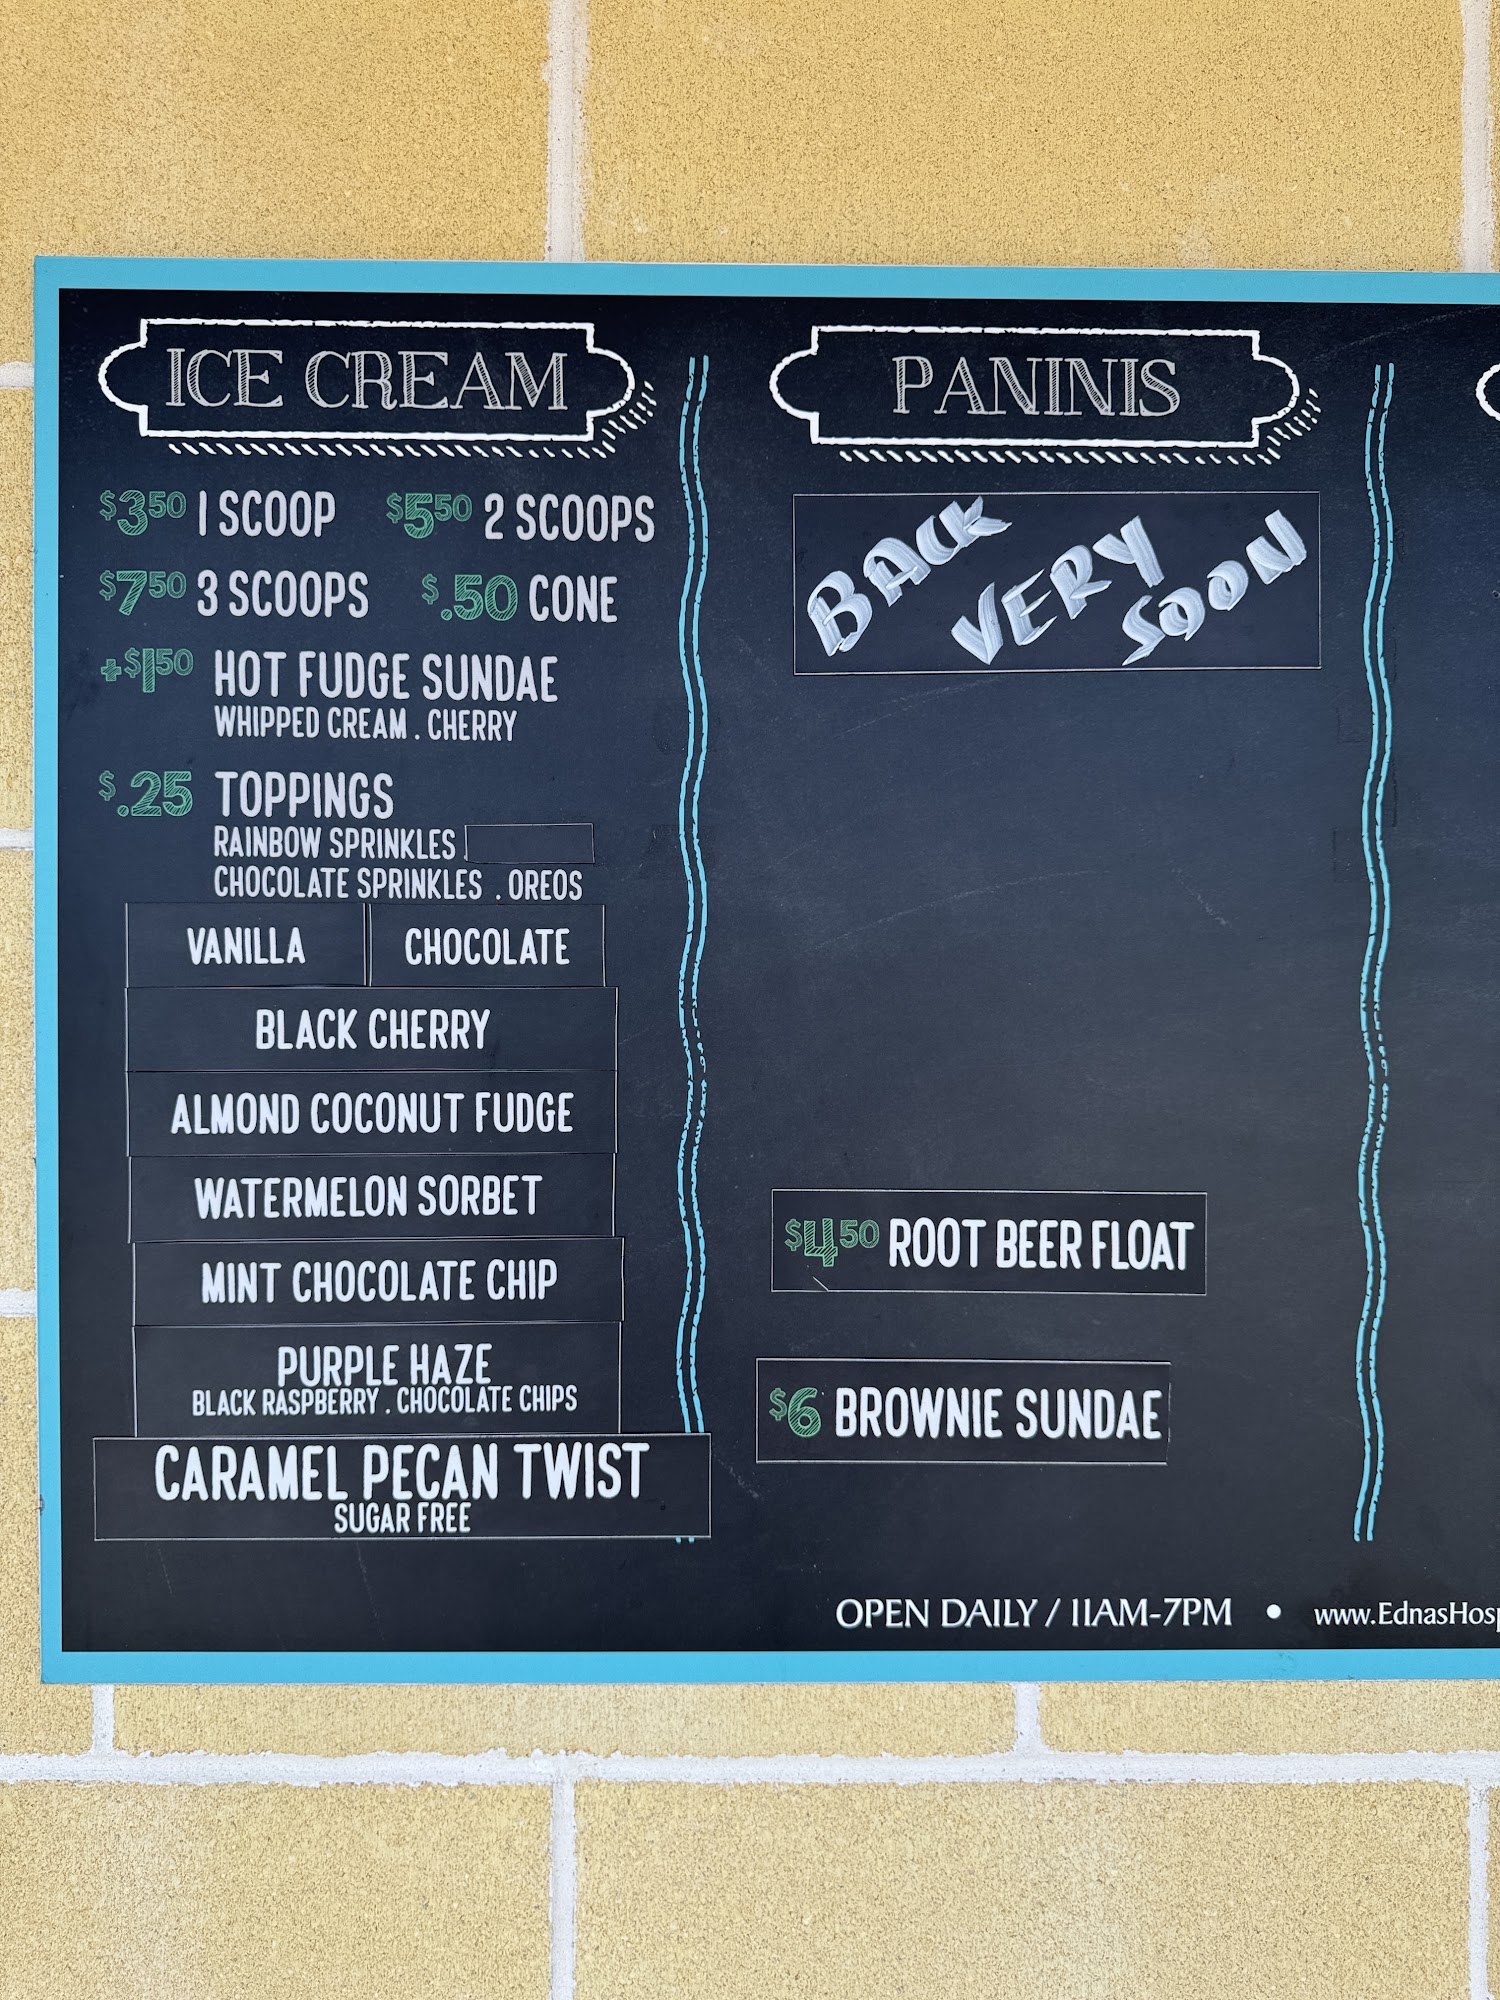 ICE CREAM
$3.50 1 SCOOP $5.50 2 SCOOPS
$7.50 3 SCOOPS $.50 CONE
+$1.50 HOT FUDGE SUNDAE
WHIPPED CREAM . CHERRY
$.25 TOPPINGS
RAINBOW SPRINKLES .
CHOCOLATE SPRINKLES . OREOS
VANILLA CHOCOLATE
BLACK CHERRY
ALMOND COCONUT FUDGE
WATERMELON SORBET
MINT CHOCOLATE CHIP
PURPLE HAZE
BLACK RASPBERRY . CHOCOLATE CHIPS
CARAMEL PECAN TWIST
SUGAR FREE
PANINIS
BACK VERY SOON
$4.50 ROOT BEER FLOAT
$6 BROWNIE SUNDAE
OPEN DAILY / 11AM-7PM • www.EdnasHosp